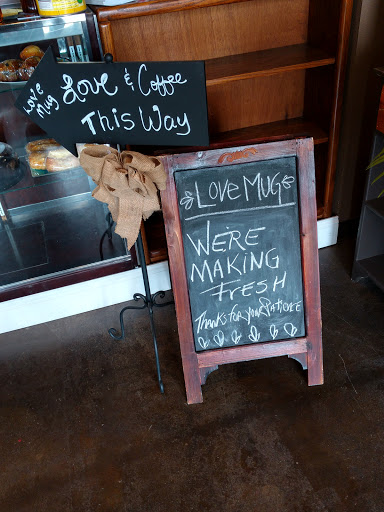 Love Mug
Love & Coffee
This Way
LOVE MUG
WE'RE
MAKING
FRESH
Thanks for your Patience